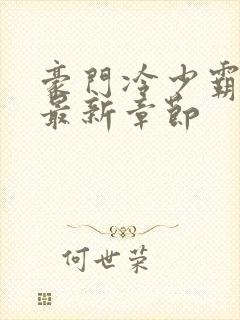 豪門冷少霸
最新章節
何世荣